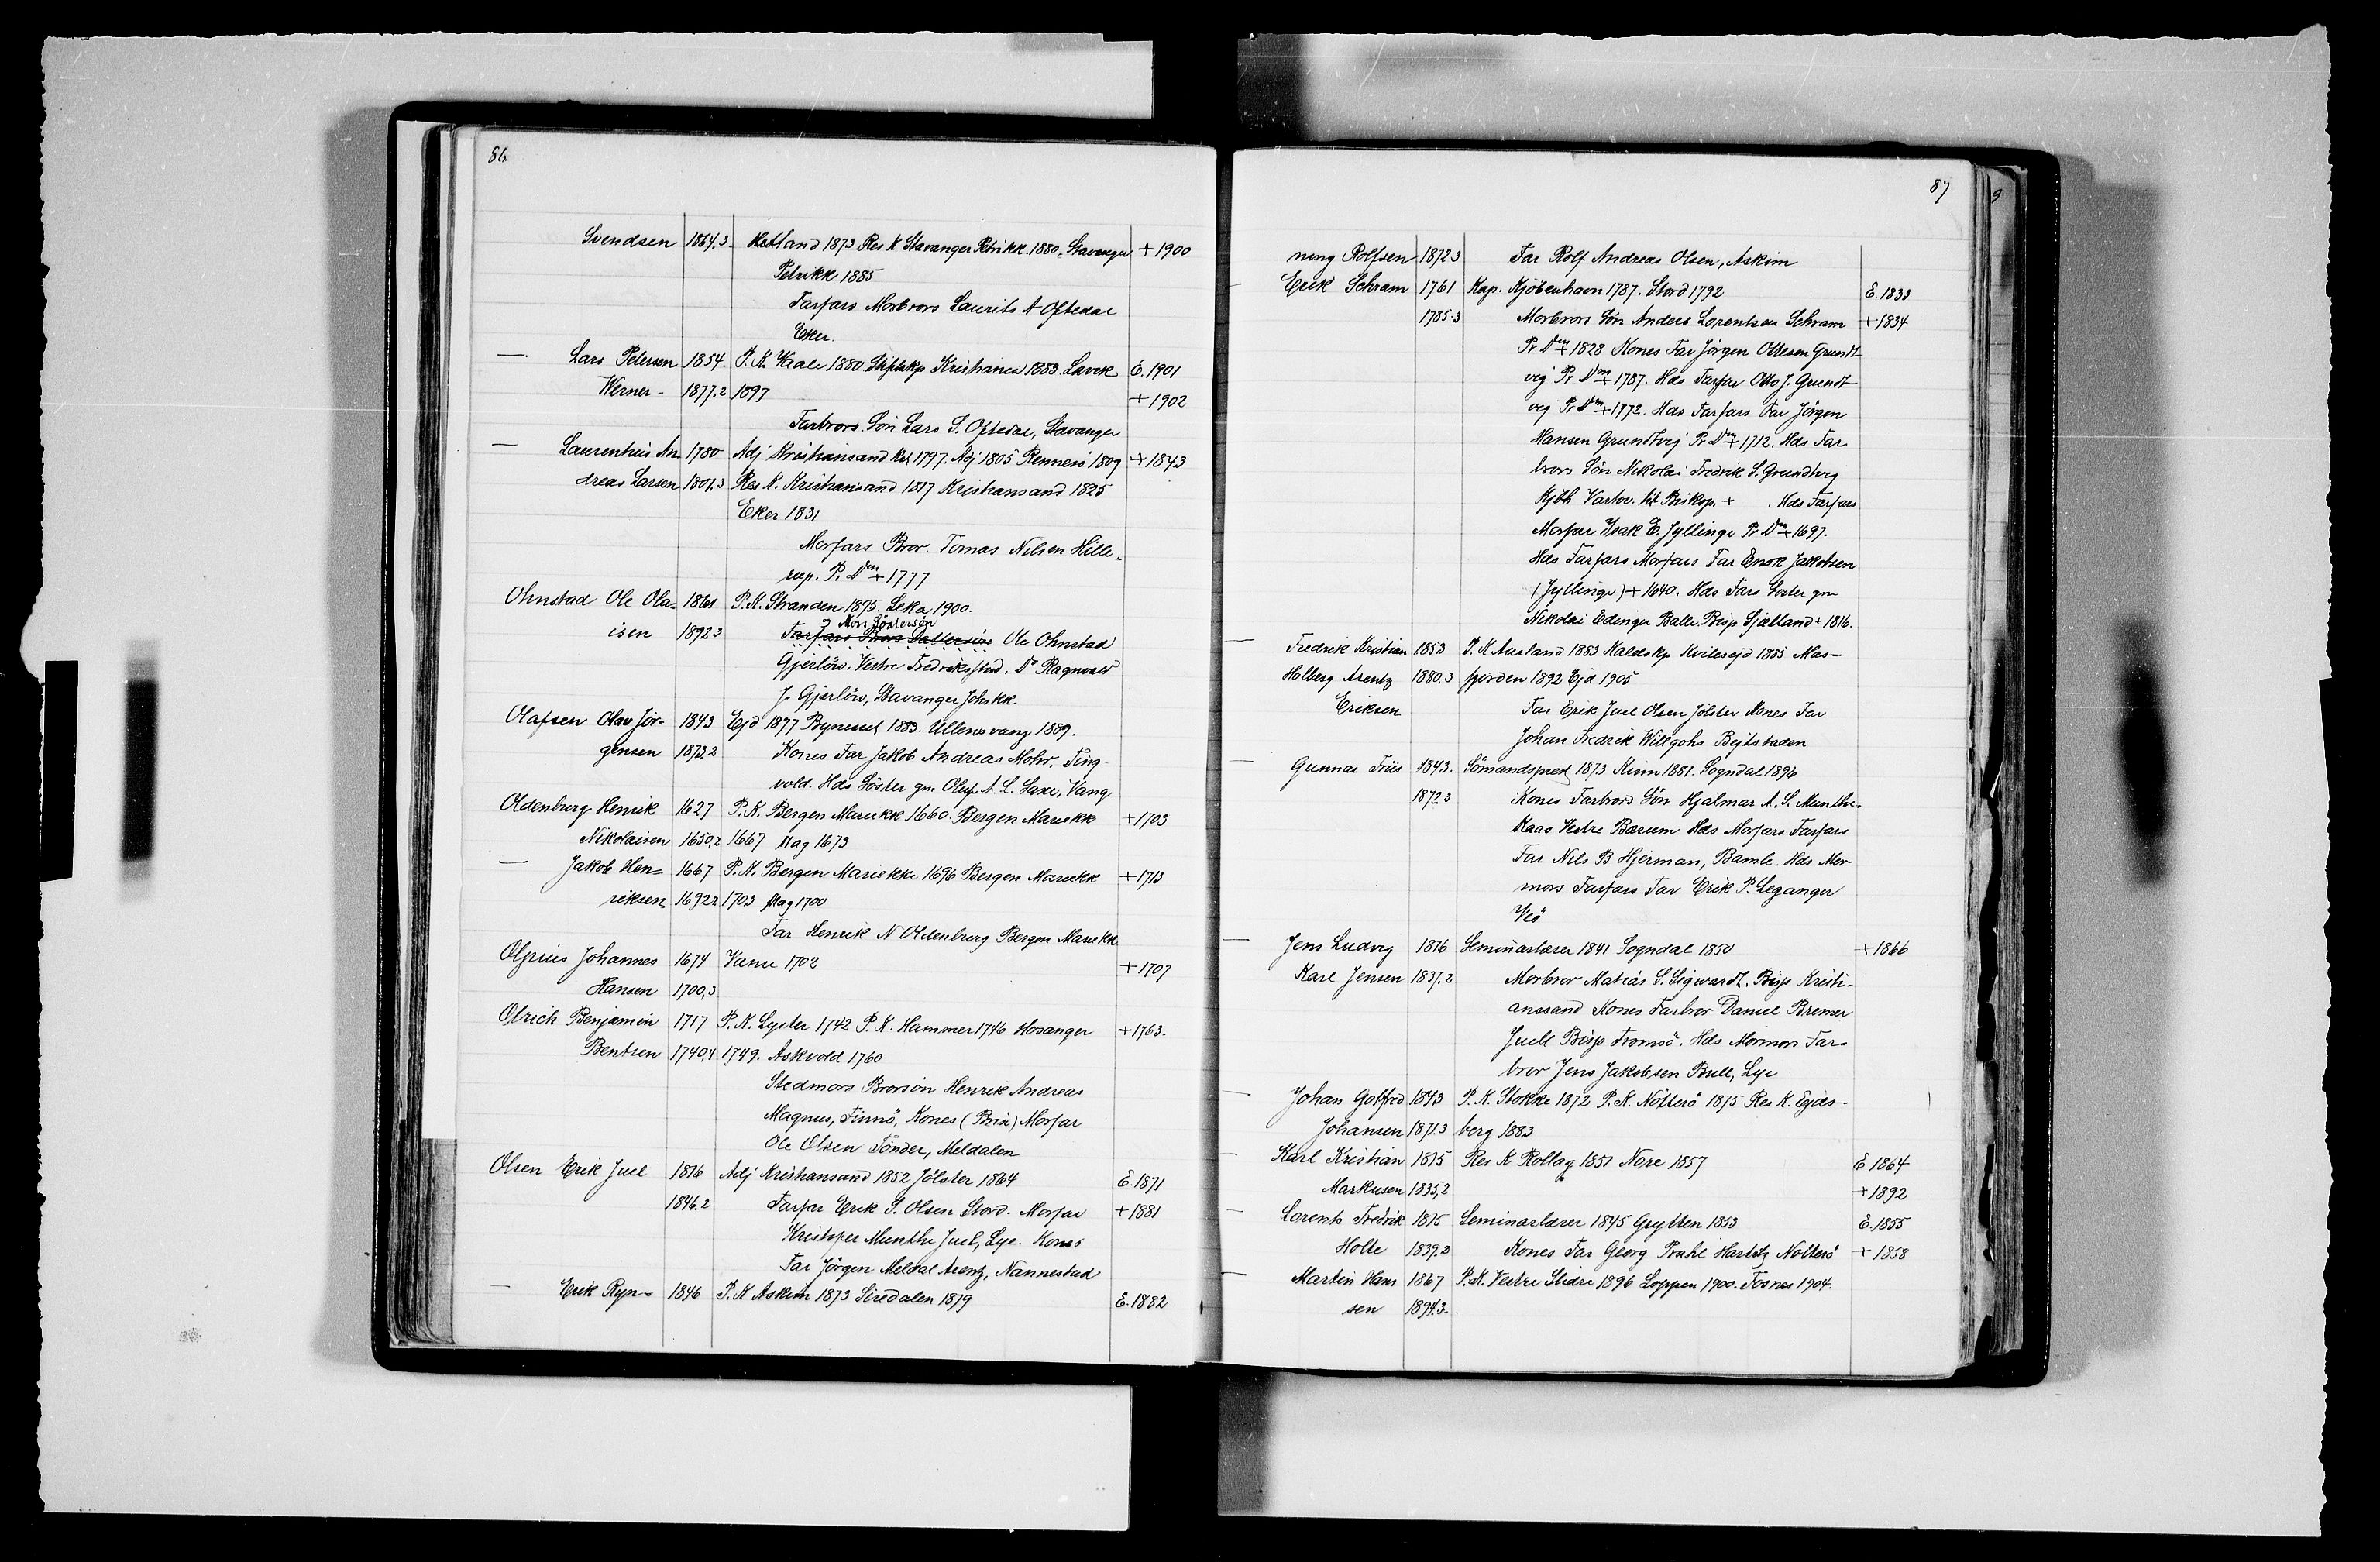 86
Svendsen 1864.3. Hetland 1873 Res K Stavanger Petrikk. 1880. Stavanger + 1900
Petrikk 1885
Farfars Morbrors Laurits A Oftedal
Eker.
— Lars Petersen 1854. P. K. Waale 1880 Stiftskp Kristiania 1883. Lavik E. 1901
Werner - 1877.2 1897 + 1902
Farbrors Sön Lars S. Oftedal, Stavanger
— Laurentius An- 1780 Adj Kristiansand 1797. Adj 1805 Rennesö 1809 + 1843
dreas Larsen 1801.3 Res K. Kristiansand 1817 Kristiansand 1825
Eker 1831
Morfars Bror. Tomas Nilsen Hille-
rup. Pr Dm + 1777
Ohnstad Ole Ola- 1861 P. K. Stranden 1895. Leka 1900.
Mors Söstersön
isen 1892.3 Farfars Brors Dattersön Ole Ohnstad
Gjerlöw. Vestre Fredrikstad. Do Ragnvald
J. Gjerlöw, Stavanger Johskk.
Olafsen Olav Jör- 1843 Ejd 1877 Bynesset 1883. Ullensvang 1889.
gensen 1872.2 Kones Far Jakob Andreas Mohr. Ting-
vold. Hds Söster gm Oluf A. L. Saxe, Vang
Oldenburg Henrik 1627 P. K. Bergen Mariekk 1660. Bergen Mariekk + 1703
Nikolaisen 1650,2 1667 Mag 1673
— Jakob Hen- 1667 P. K. Bergen Mariekk 1696 Bergen Mariekk + 1713
riksen 1692.2 1703 Mag 1700
Far Henrik N Oldenburg Bergen Mariekk
Olgrius Johannes 1674 Vanse 1702 + 1707
Hansen 1700,3
Olrich Benjamin 1717 P. K. Lyster 1742 P. K. Hammer 1746 Hosanger + 1763.
Bentsen 1740,4 1749. Askvold 1760
Stedmors Brorsön Henrik Andreas
Magnus, Finnö, Kones (Brix) Morfar
Ole Olsen Tönder, Meldalen
Olsen Erik Juel 1816 Adj Kristiansand 1852 Jölster 1864 E. 1871
1846.2 Farfar Erik S. Olsen Stord. Morfar + 1881
Kristofer Munthe Juel, Lye. Kones
Far Jörgen Meldal Arentz, Nannestad
— Erik Ryn- 1846 P. K Askim 1873 Siredalen 1879 E. 1882
87
9
ning Rolfsen 1872.3 Far Rolf Andreas Olsen, Askim
— Erik Schram 1761 Kap. Kjöbenhavn 1787. Stord 1792 E. 1833
1785.3 Morbrors Sön Anders Lorentsen Schram + 1834
Pr Dm + 1828 Kones Far Jörgen Ottesen Grundt
vig Pr Dm + 1787. Hds Farfar Otto J. Grundt
vig Pr Dm + 1772. Hds Farfars Far Jörgen
Hansen Grundtvig Pr Dm + 1712. Hds Far
brors Sön Nikolai Fredrik S. Grundtvig
Kjbh Vartov. tit Biskop. + . Hds Farfars
Morfar Isak E. Jyllinge Pr Dm + 1697.
Hds Farfars Morfars Far Enok Jakobsen
(Jyllinge) + 1640. Hds Fars Söster gm
Nikolai Edinger Balle Bisp Sjælland + 1816.
— Fredrik Kristian 1853 P. K Aurland 1883 Kaldskp Kvitesejd 1885 Mas-
Holberg Arentz 1880.3 fjorden 1892 Ejd 1905
Eriksen Far Erik Juel Olsen Jölster Kones Far
Johan Fredrik Willgohs Bejtstaden
— Gunnar Friis 1843. Sömandspræst 1873 Kinn 1881. Sogndal 1896
1872.3 Kones Farbrors Sön Hjalmar A. S. Munthe-
Kaas Vestre Bærum Hds Morfars Farfars
Far Nils B Hjerman, Bamle. Hds Mor
mors Farfars Far Erik P. Leganger
Veö
— Jens Ludvig 1816 Seminarlærer 1841 Sogndal 1850 + 1866
Karl Jensen 1837.2 Morbror Matias S. Sigwardt. Bisp Kristi-
anssand Kones Farbror Daniel Bremer
Juell Bisp Tromsö. Hds Mormors Far-
bror Jens Jakobsen Bull, Lye
— Johan Gotfred 1843 P. K. Stokke 1872 P. K. Nötterö 1875 Res K. Ejds-
Johansen 1871.3 berg 1883
— Karl Kristian 1815 Res K Rollag 1851 Nore 1857 E 1864
Markusen 1835,2 + 1892
— Lorents Fredrik 1815 Seminarlærer 1845 Grytten 1853 E. 1855
Holte 1839.2 Kones Far Georg Prahl Harbitz Nötterö + 1858
— Martin Hans 1867 P. K. Vestre Slidre 1896 Loppen 1900. Fosnes 1904.
sen 1894.3.